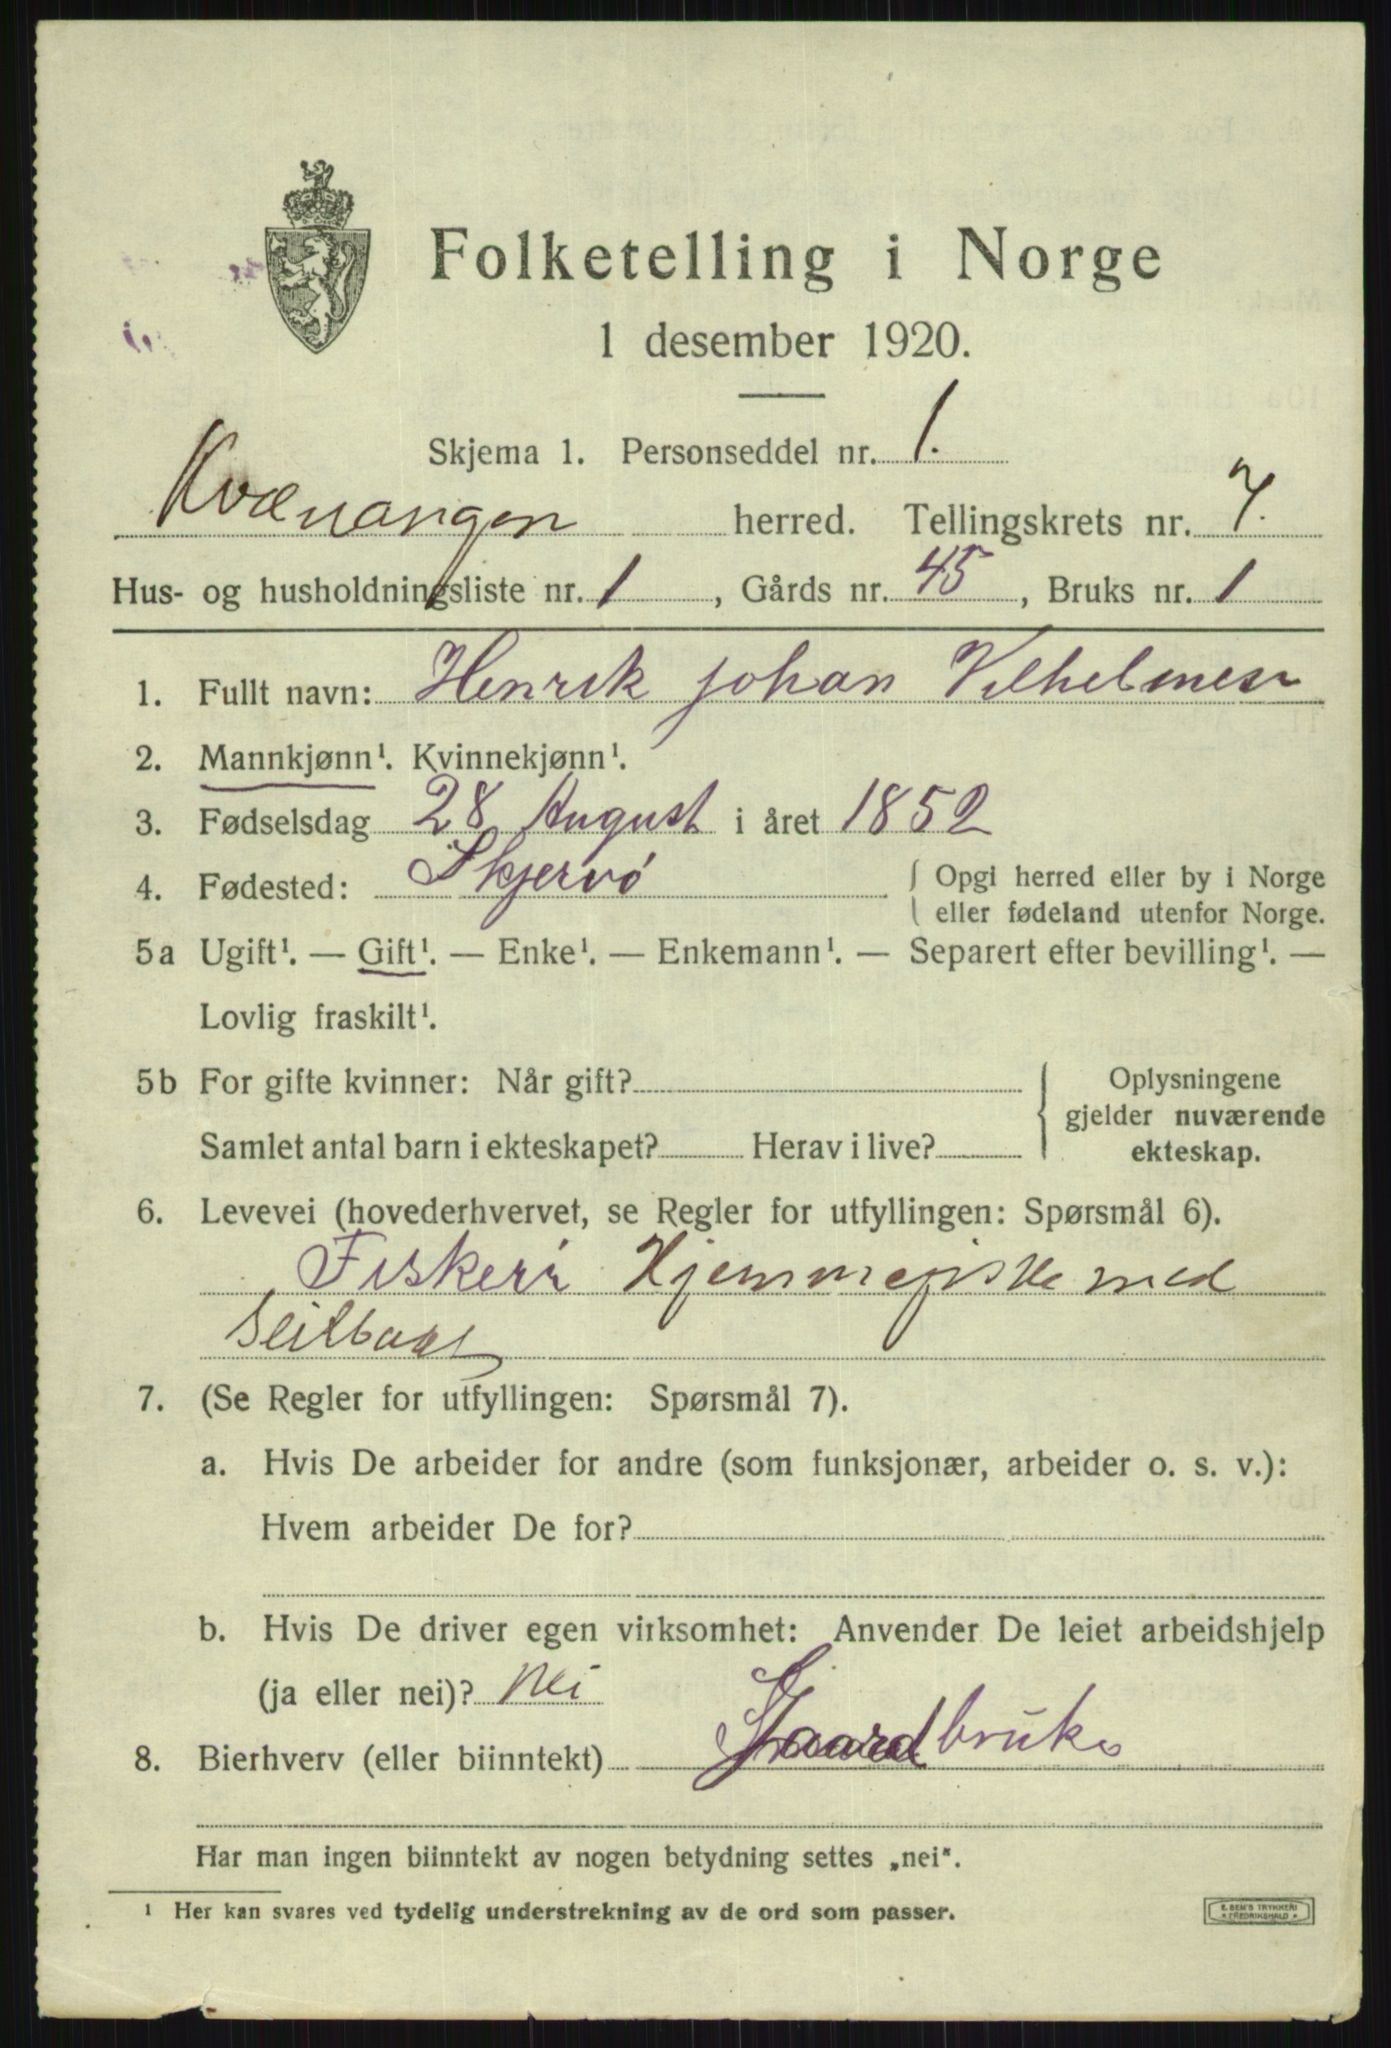 Folketelling i Norge
1 desember 1920.
Skjema 1. Personseddel nr. 1.
Kvænangen herred. Tellingskrets nr. 7.
Hus- og husholdningsliste nr. 1, Gårds nr. 45, Bruks nr. 1
1. Fullt navn: Henrik Johan Vilhelmesn
2. Mannkjønn¹. Kvinnekjønn¹.
3. Fødselsdag 28 August i året 1852
4. Fødested: Skjervö { Opgi herred eller by i Norge
eller fødeland utenfor Norge.
5a Ugift¹. — Gift¹. — Enke¹. — Enkemann¹. — Separert efter bevilling¹. —
Lovlig fraskilt¹.
5b For gifte kvinner: Når gift? { Oplysningene
gjelder nuværende
Samlet antal barn i ekteskapet? Herav i live? ekteskap.
6. Levevei (hovederhvervet, se Regler for utfyllingen: Spørsmål 6).
Fiskeri Hjemmefiske med
Seilbaat
7. (Se Regler for utfyllingen: Spørsmål 7).
a. Hvis De arbeider for andre (som funksjonær, arbeider o. s. v.):
Hvem arbeider De for?
b. Hvis De driver egen virksomhet: Anvender De leiet arbeidshjelp
(ja eller nei)? Nei
8. Bierhverv (eller biinntekt) Gaardbruk
Har man ingen biinntekt av nogen betydning settes „nei".
¹ Her kan svares ved tydelig understrekning av de ord som passer.
E. SEM'S TRYKKERI
* FREDRIKSHALD *